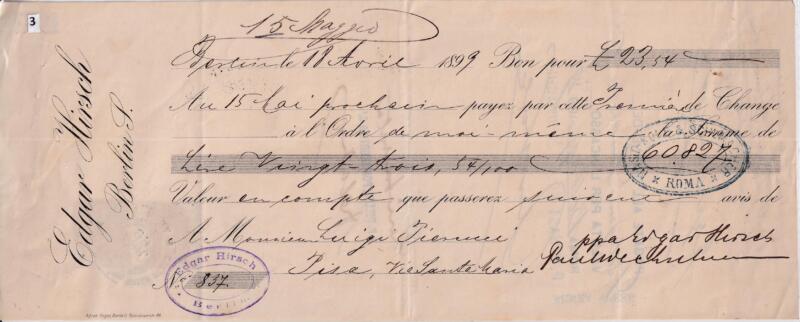 3
15 Maggio
Edgar Hirsch
Berlin S.
Berlin le 18 Avril 1899 Bon pour £ 23,54
Au 15 Mai prochain payez par cette Première de Change
à l'Ordre de moi-même la Somme de
Lire Vingt-trois, 54/100
60.827
ROMA
Valeur en compte que passerez suivant avis de
A Monsieur Luigi
Pisa, Via Santa Maria
ppa Edgar Hirsch
Edgar Hirsch
No 837.
Berlin